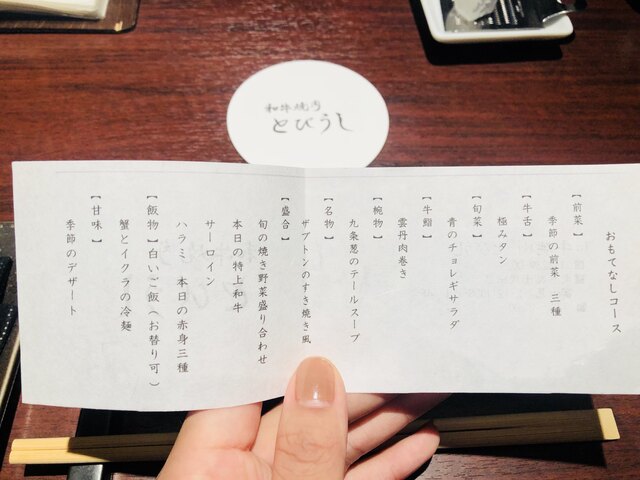 和牛焼肉
とびうし
おもてなしコース
【前菜】
季節の前菜 三種
【牛舌】
極みタン
【旬菜】
青のチョレギサラダ
【牛鮨】
雲丹肉巻き
【椀物】
九条葱のテールスープ
【名物】
ザブトンのすき焼き風
【盛合】
旬の焼き野菜盛り合わせ
本日の特上和牛
サーロイン
ハラミ 本日の赤身三種
【飯物】白いご飯(お替り可)
蟹とイクラの冷麺
【甘味】
季節のデザート